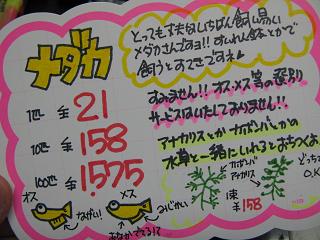 とっても丈夫ないちばん飼い易い
メダカさんですヨ!!すいれん鉢とかで
飼うとすてきですネ
メダカ
1匹 ¥21
10匹 ¥158
100匹 ¥1,575
すみません!!オス・メス等の選別
サービスはいたしておりません!!
アナカリスとかカボンバとかの
水草と一緒にいれるとおちつくよ
オス
メス
ながい!
みじかい
おなかでてる!て
カボンバ
アナカリス
1束
¥158
どっちでも
O.K